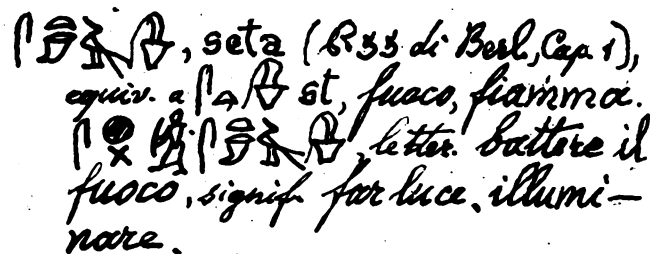 , seta (R 33 di Berl., Cap. 1),
equiv. a st, fuoco, fiamma.
, letter. battere il
fuoco, signif. far luce, illumi-
nare.